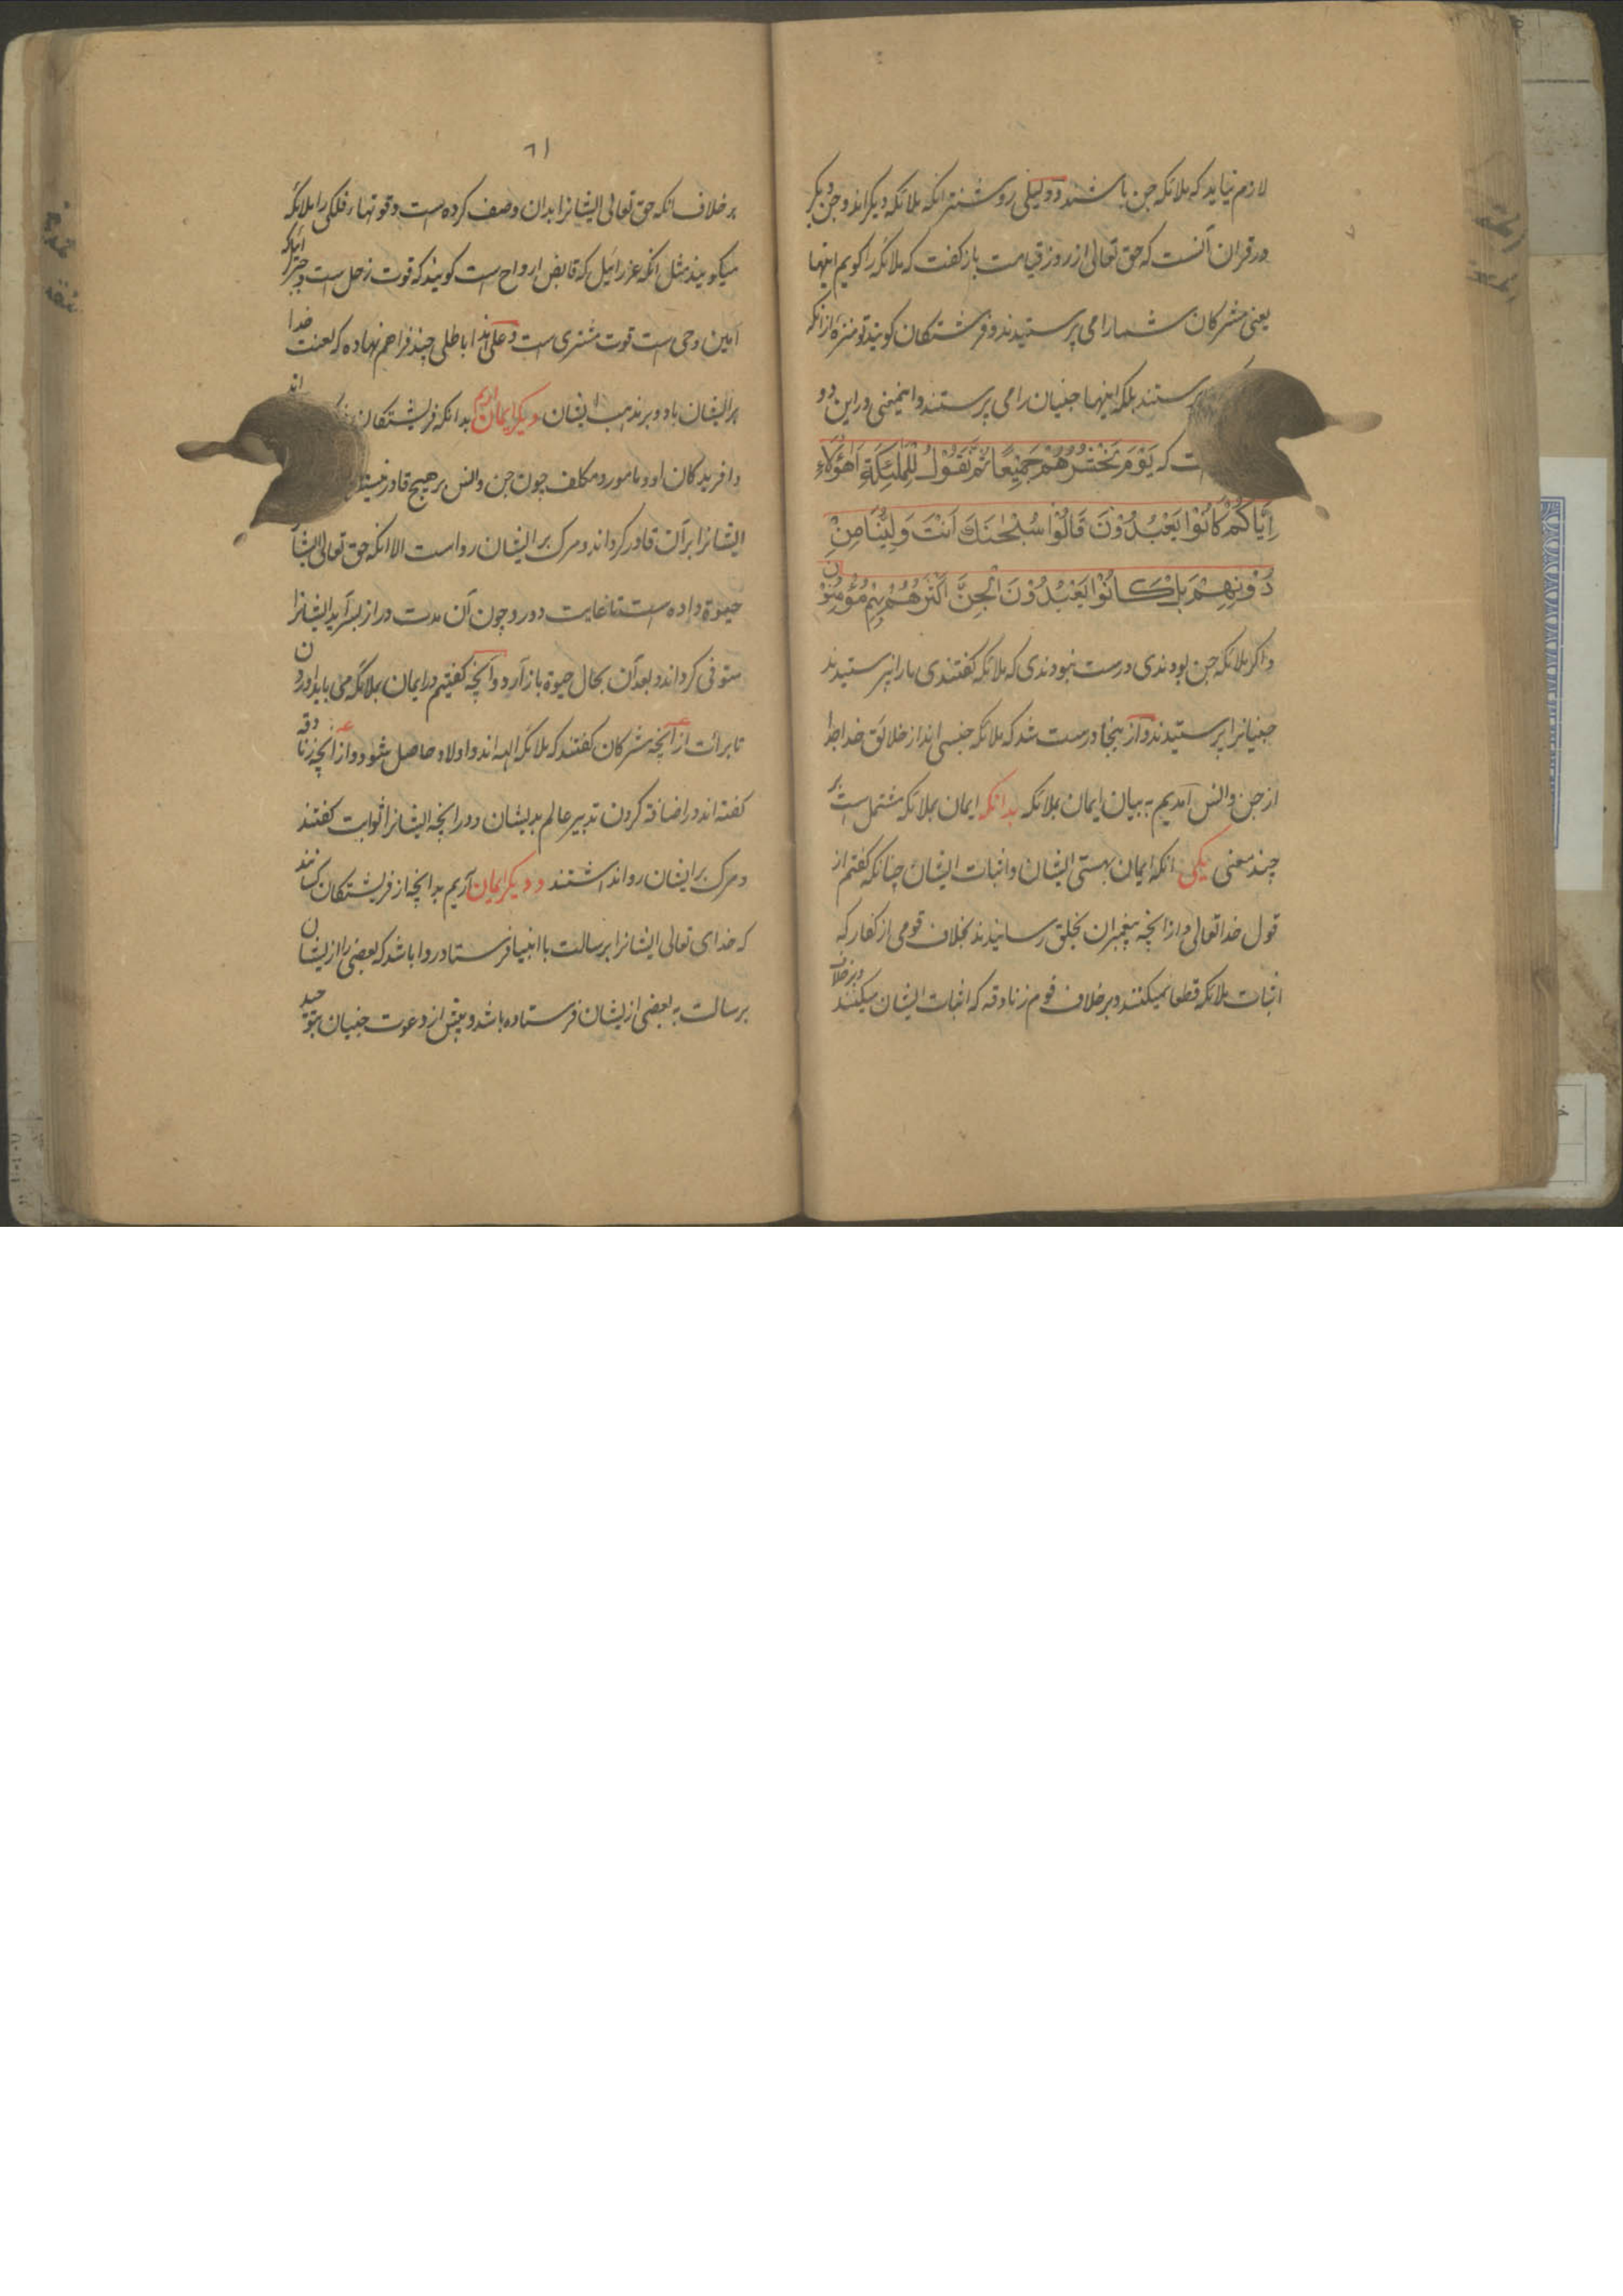 لازم نیاید که ملائکه جن باشند و دلیلی روشنتر انکه ملائکه دیکراند و جن دیکر
در قران آنست که حق تعالی از روز قیامت باز کفت که ملائکه را کویم اینها
یعنی مشرکان شما را می پرستیدند و فرشتکان کویند تو منزهٔ از انکه
پرستند بلکه اینها جنیان را می پرستند و این دو
که یَوْمَ نَحْشُرُهُمْ جَمِیْعًا ثُمَّ نَقُوْلُ لِلْمَلٰئِکَةِ اَهٰؤُلَاءِ
اِیَّاکُمْ کَانُوْا یَعْبُدُوْنَ قَالُوْا سُبْحٰنَكَ اَنْتَ وَلِیُّنَا مِنْ
دُوْنِهِمْ بَلْ کَانُوْا یَعْبُدُوْنَ الْجِنَّ اَکْثَرُهُمْ بِهِمْ مُؤْمِنُوْنَ
و اکر ملائکه جن بودندی درست نبودندی که ملائکه کفتندی ما را نپرستیدند
جنیانرا پرستیدند و از ینجا درست شد که ملائکه جنسی اند از خلائق خدا جدا
از جن و انس آمدیم به بیان ایمان بملائکه بدانکه ایمان بملائکه مشتمل است بر
چند معنی یکی انکه ایمان بهستی ایشان و اثبات ایشان چنانکه کفتم از
قول خدا تعالی و از انچه پیغمبران بخلق رسانیدند بخلاف قومی از کفار که
اثبات ملائکه قطعا نمیکنند و بر خلاف قوم زنادقه که اثبات ایشان میکنند
و بر خلاف
٦١
بر خلاف انکه حق تعالی ایشانرا بدان وصف کرده است و قوتهاء فلکی را ملائکه
میکویند مثل انکه عزرائیل که قابض ارواح است کویند که قوت زحل است و جبرائیل که
امین وحی است قوت مشتری است و علی هذا اباطلی چند فراهم نهاده که لعنت خدا
بر ایشان باد و بر مذهب ایشان دیکر ایمان اریم بدانکه فریشتکان اند
و افریدکان او و مامور و مکلف چون جن و انس بر هیچ قادر نیستند
ایشانرا بر آن قادر کرداند و مرک بر ایشان رواست الا انکه حق تعالی ایشانرا
حیوة داده است تا غایت دور و چون آن مدت دراز بسر آید ایشانرا
متوفی کرداند و بعد آن بحال حیوة باز آرد و آنچه کفتیم در ایمان بملائکه می باید اوردن
تا برائت از آنچه مشرکان کفتند که ملائکه الهه اند و اولاد حاصل شود و از انچه زنادقه
کفته اند در اضافه کردن تدبیر عالم بدیشان و در انچه ایشانرا ثوابت کفتند
و مرک بر ایشان روا نداشتند و دیکر ایمان آریم بدانچه از فریشتکان کسانند
که خدای تعالی ایشانرا برسالت با انبیا فرستاد و روا باشد که بعضی را از یشان
برسالت به بعضی از یشان فرستاده باشد و پیش از دعوت جنیان بتوحید